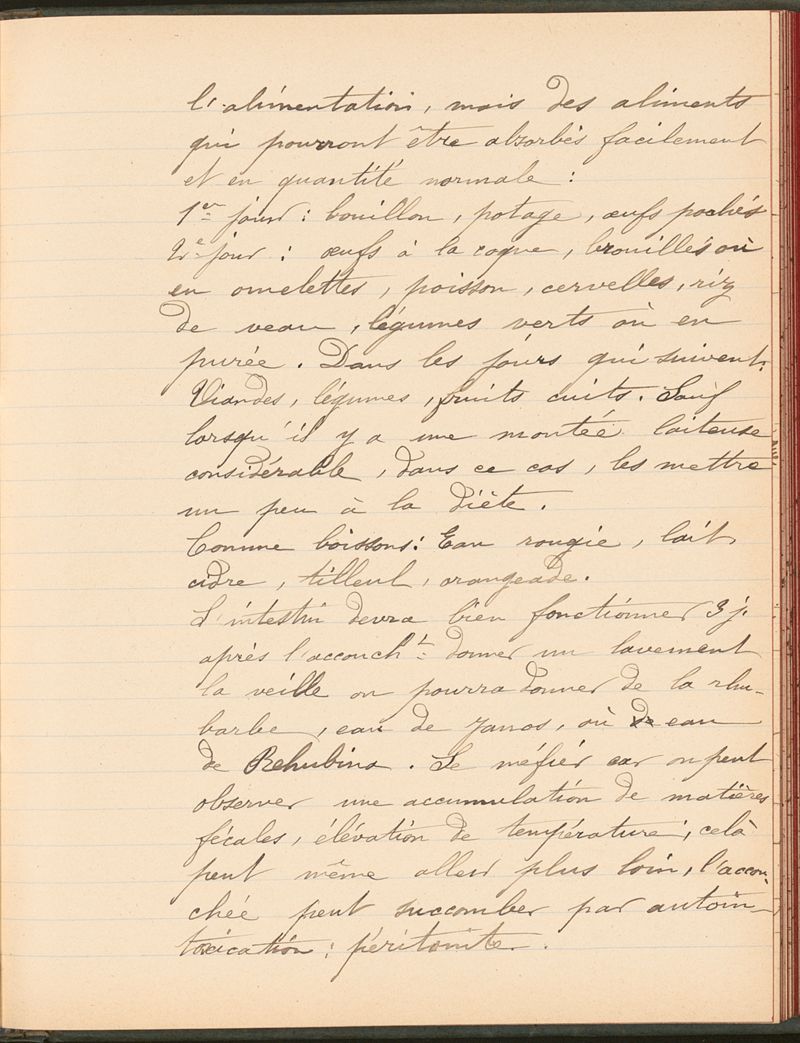 l'alimentation, mais des aliments
qui pourront être absorbés facilement
et en quantité normale :
1er jour : bouillon, potage, œufs pochés
2e jour : œufs à la coque, brouillés où
en omelettes, poisson, cervelles, riz
de veau, légumes verts où en
purée. Dans les jours qui suivent.
Viandes, légumes, fruits cuits. Sauf
lorsqu'il y a une montée laiteuse
considérable, dans ce cas, les mettre
un peu à la diète.
Comme boissons : Eau rougie, lait,
cidre, tilleul, orangeade.
L'intestin devra bien fonctionner 3 j.
après l'accoucht donner un lavement
la veille on pourra donner de la rhu-
barbe, eau de Janos, où de eau
de Rehubina. Se méfier car on peut
observer une accumulation de matières
fécales, élévation de température, celà
peut même aller plus loin, l'accou-
chée peut succomber par autoin-
toxication : péritonite.